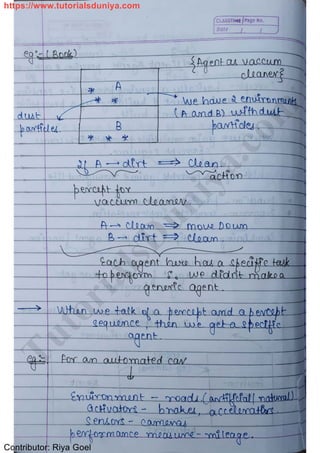 https://www.tutorialsduniya.com
CLASSTIME Page No.
Date / /
eg:- (Book)
{Agent as vaccum
cleaner}
A
we have 2 environments
(A and B) with dust
particles.
dust
particles.
B
If A → dirt ⇒ Clean.
action
percept for
vaccum cleaner
A → Clean ⇒ move Down
B → dirt ⇒ clean.
Each agent here has a specific task
to perform i. we didn't make a
generic agent.
→ When we talk of a percept and a percept
sequence, then we get a specific
agent.
eg:- For an automated car
Environment - roads (artificial / natural)
activators - brakes, accelerators
Sensors - cameras
performance measure - mileage.
Contributor: Riya Goel